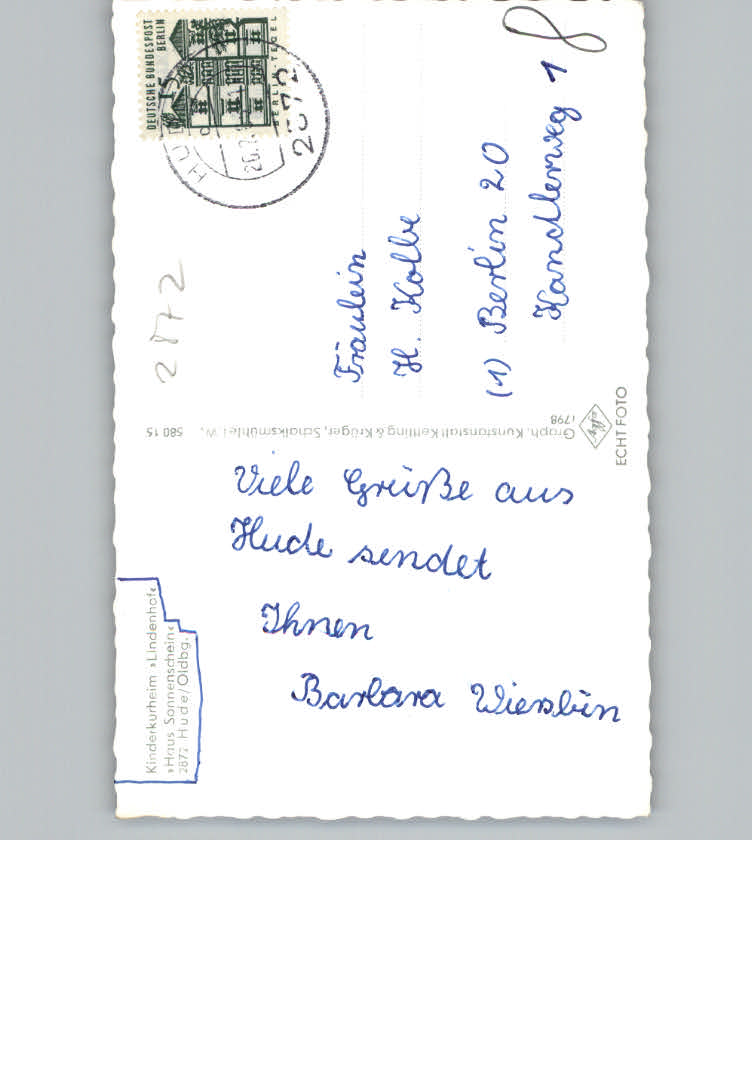 DEUTSCHE BUNDESPOST
BERLIN
15
BERLIN-TEGEL
2872
2872
Fräulein
H. Kolbe
(1) Berlin 20
Kandlerweg 1
Graph. Kunstanstalt Kettling & Krüger, Schalksmühle i. W. 580 15
ECHT FOTO
Viele Grüße aus
Hude sendet
Ihnen
Barbara
Kinderkurheim »Lindenhof«
»Haus Sonnenschein«
2872 Hude/Oldbg.